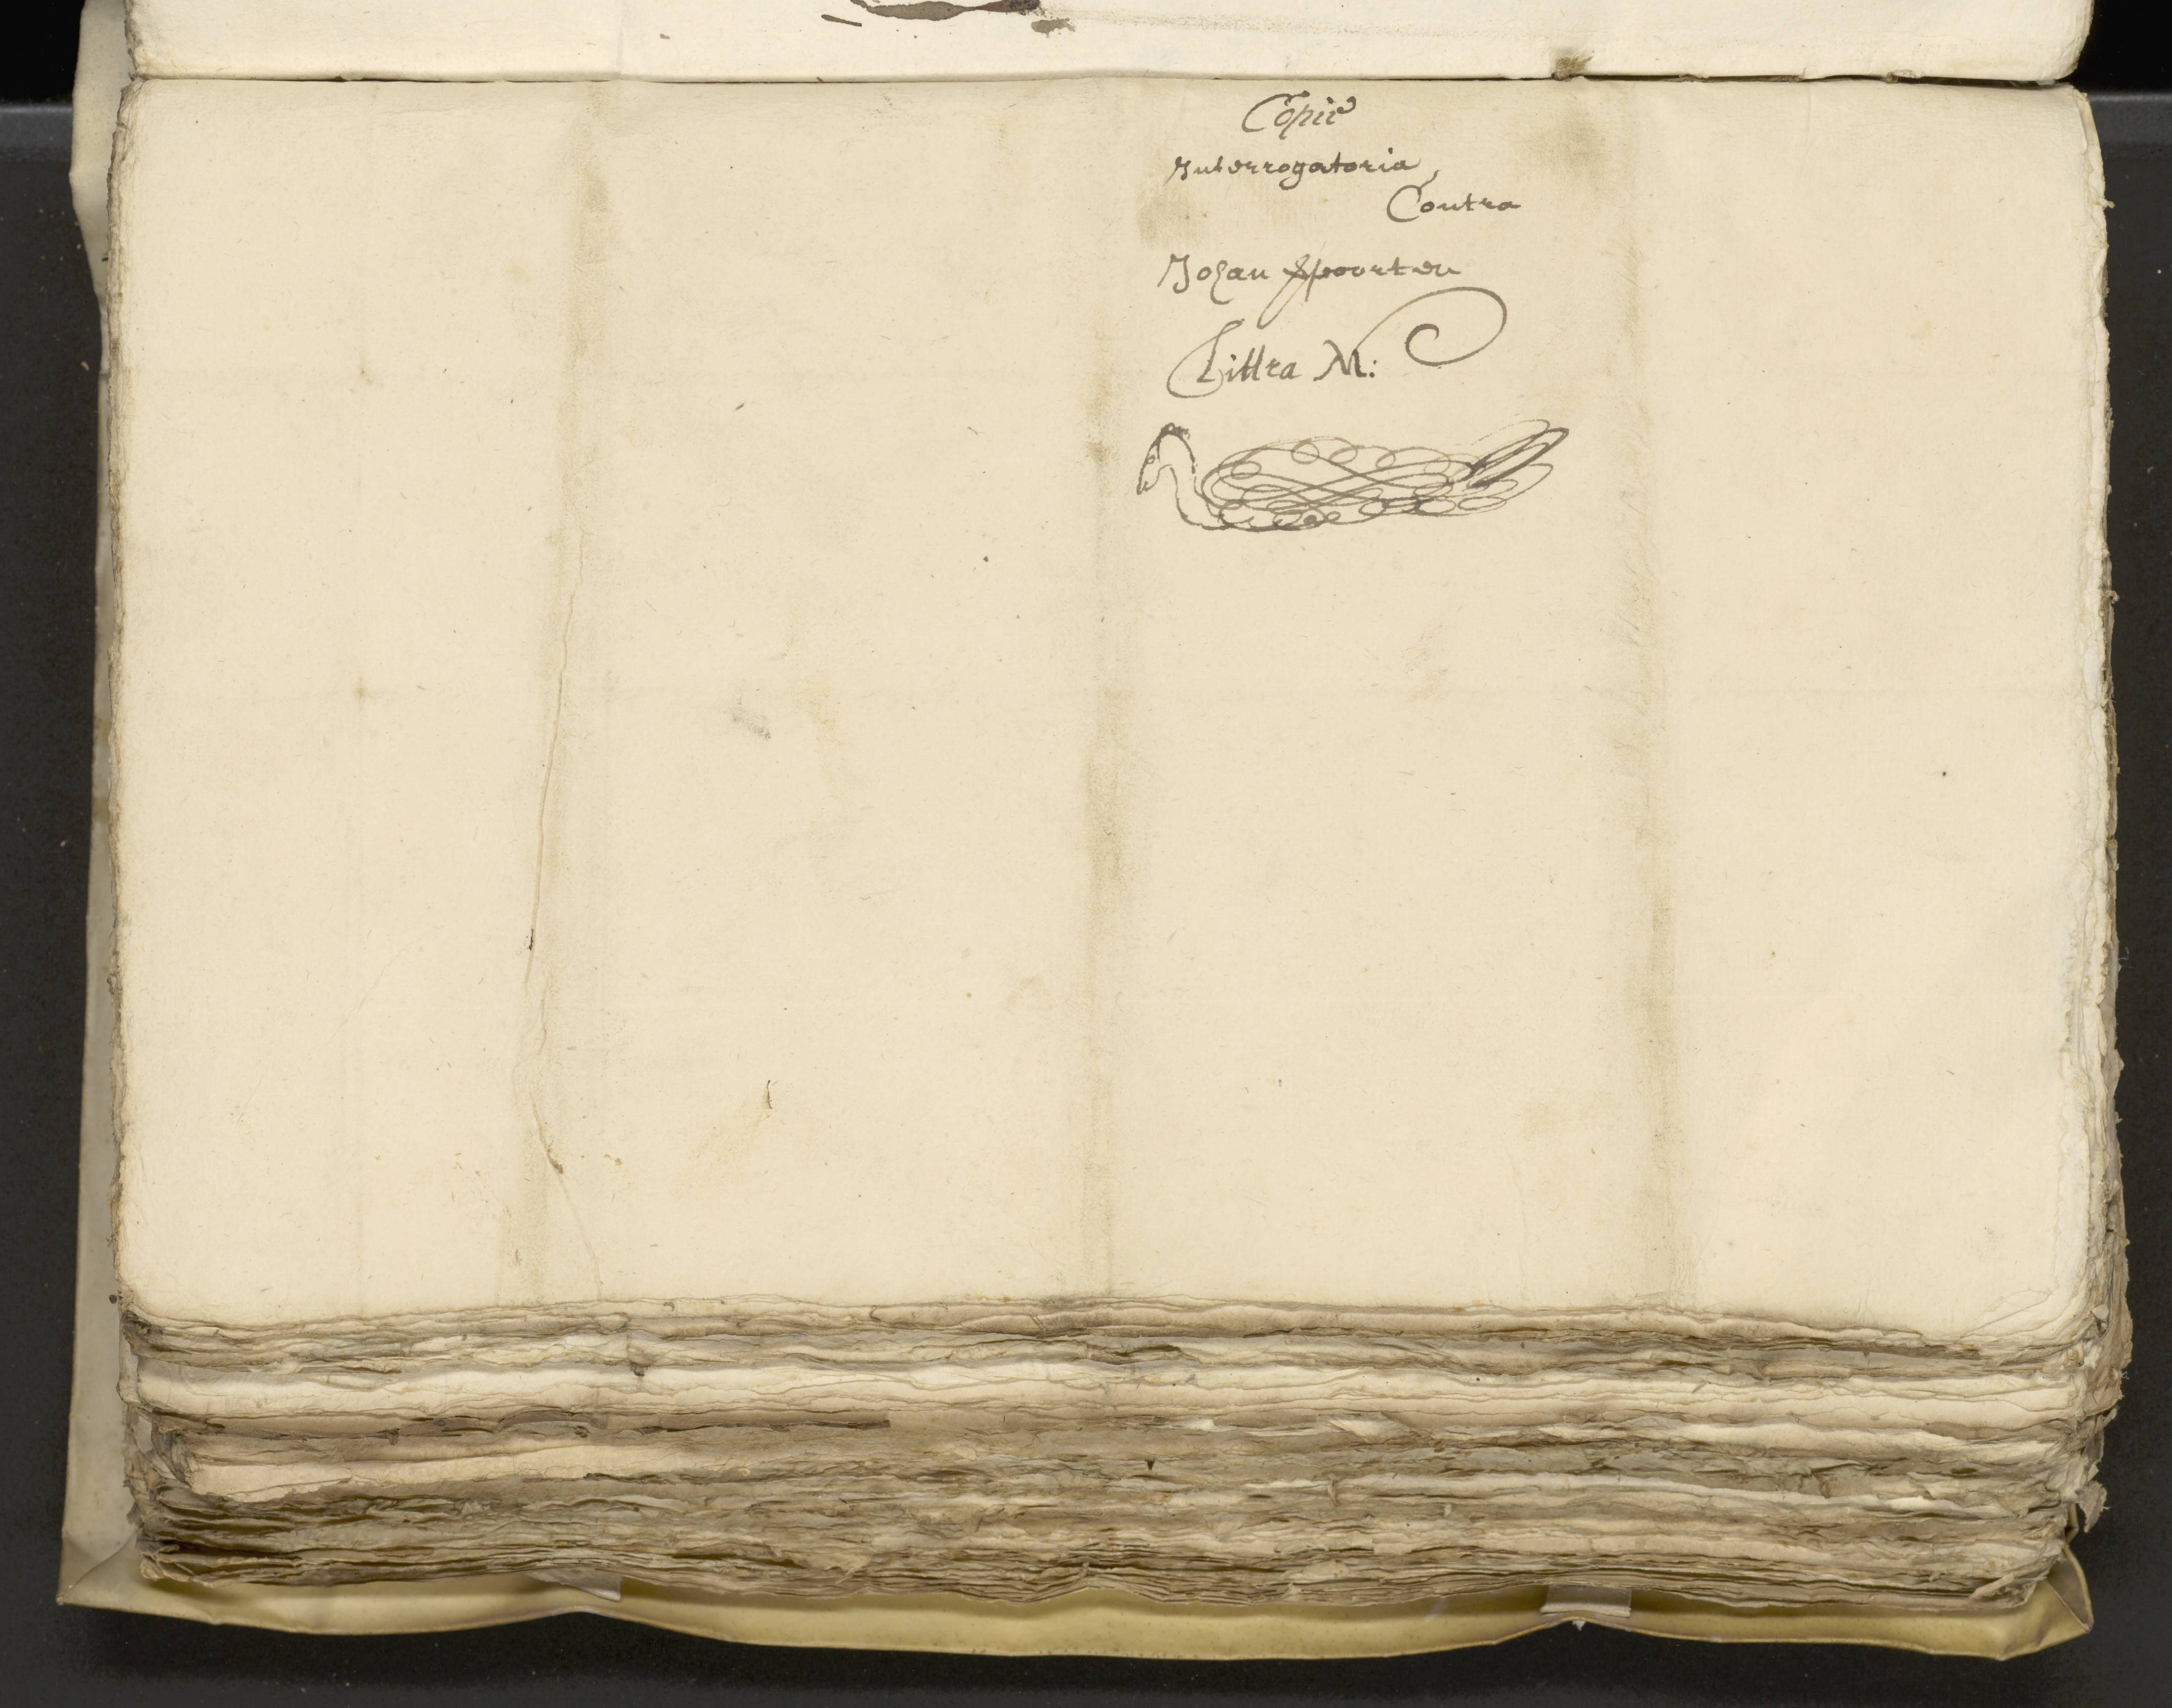 Copie
Interrogatoria
Contra
Johan Spoorten
Littra M: